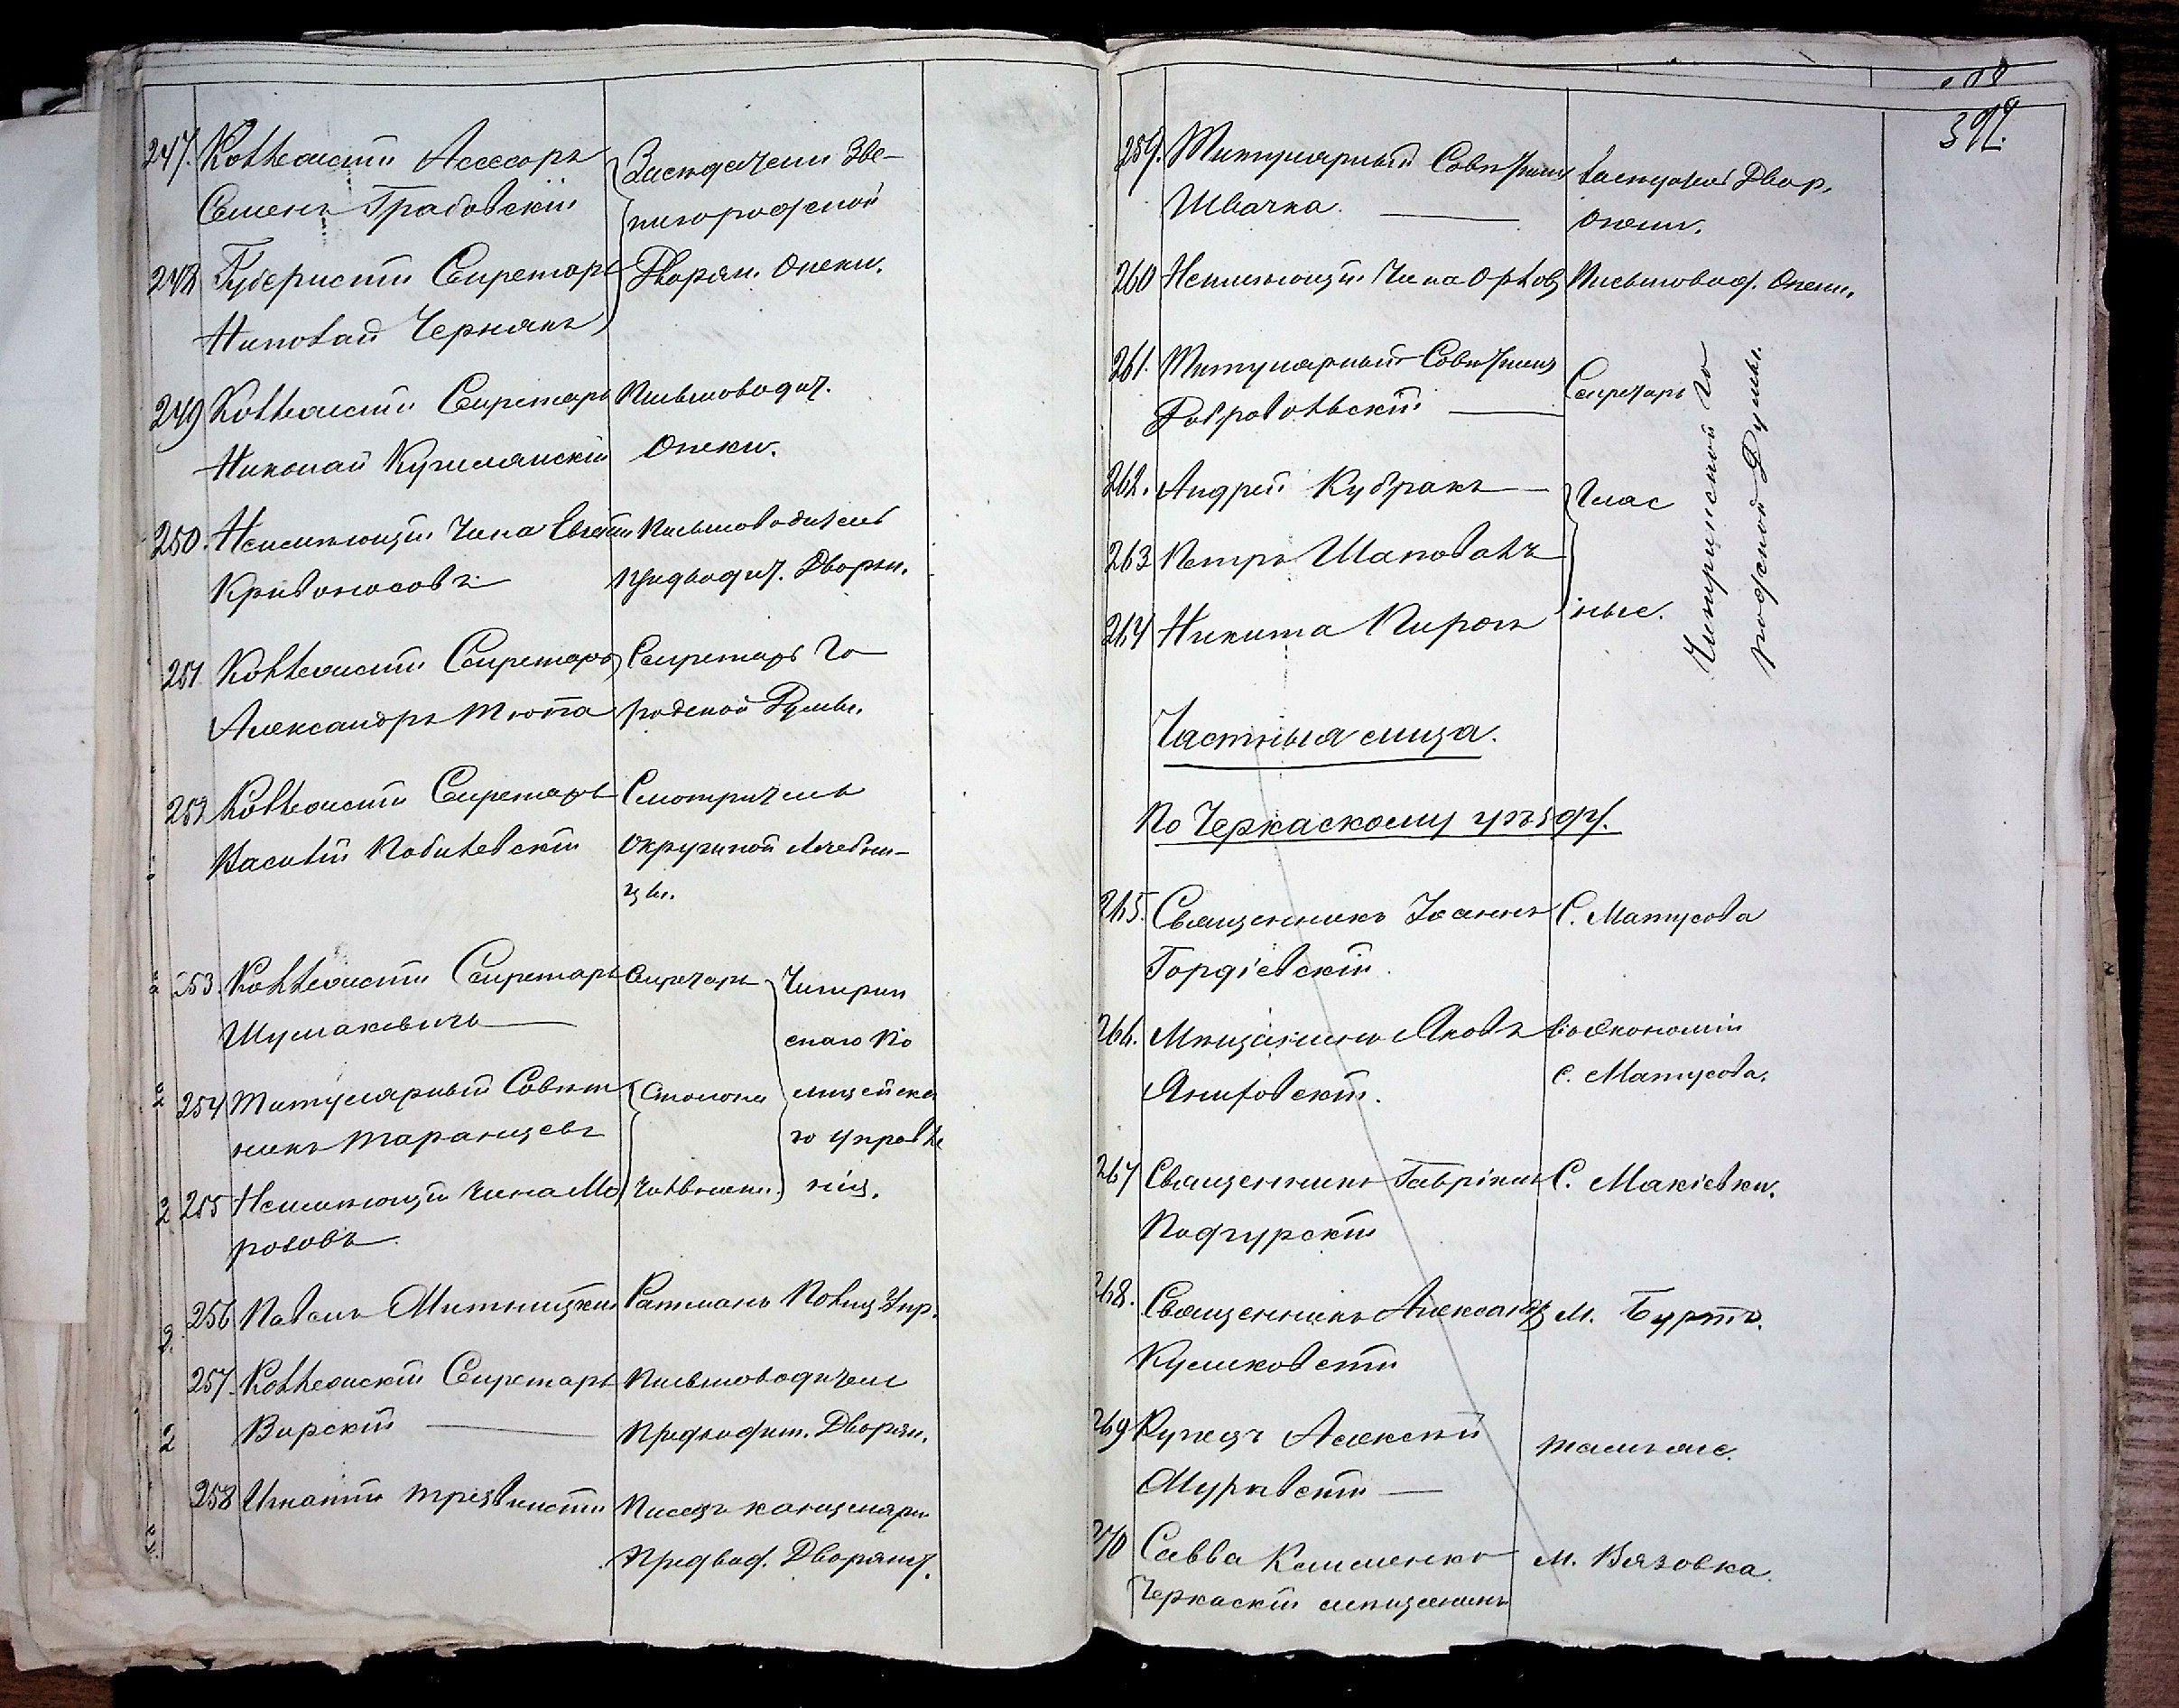 247. Коллежскій Ассесоръ
Семенъ Градовскій
Засѣдатели Зве-
нигородской
Дворян. Опеки.
248 Губернскій Секретарь
Николай Чернякъ
249 Коллежскій Секретарь
Николай
Письмоводит.
Опеки.
250. Неимѣющій Чина Евгеній
Кривоносовъ
Письмоводитель
Предводит. Дворян.
251 Коллежскій Секретарь
Александръ Тюппа
Секретарь Го
родской Думы.
252 Коллежскій Секретарь
Василій Побилевскій
Смотритель
Окружной Лечебни-
цы.
253. Коллежскій Секретарь
Шумакевичъ
Секретарь
Чигирин
скаго По
лицейска
го Управле
нія.
254 Титулярный Совѣт
никъ Таранцевъ
Столона
255 Неимѣющій Чина Мо
розовъ
чальники.
256 Павелъ Митницкій Ратманъ Полиц. Упр.
257. Коллежскій Секретарь
Вирскій
Письмоводитель
Предводит. Дворян.
258 Игнатій
Писецъ канцеляріи
Предвод. Дворянст.
397.
259. Титулярный Совѣтникъ
Швачка.
Засѣдатель Двор.
Опеки.
260 Неимѣющій Чина Орловъ Письмовод. Опеки.
261. Титулярный Совѣтникъ
Добровольскій
Секретарь
262. Андрей Кубракъ
263 Петръ Шаповалъ
264 Никита Пирогъ
Глас
ные.
Чигиринской Го
родской Думы.
Частныя лица.
По Черкаскому уѣзду.
265. Священникъ Іоаннъ
Гордіевскій.
С. Матусова
266. Мѣщанинъ Яковъ
Яниковскій.
Въ Экономіи
с. Матусова.
267 Священникъ Гавріилъ
Подгурскій
С. Макіевки.
268. Священникъ Александръ
Кумковскій
М. Бурты.
269 Купецъ Алексѣй
Муравскій
тамъ же.
270 Савва Клименко
Черкаскій мѣщанинъ
М. Вязовка.